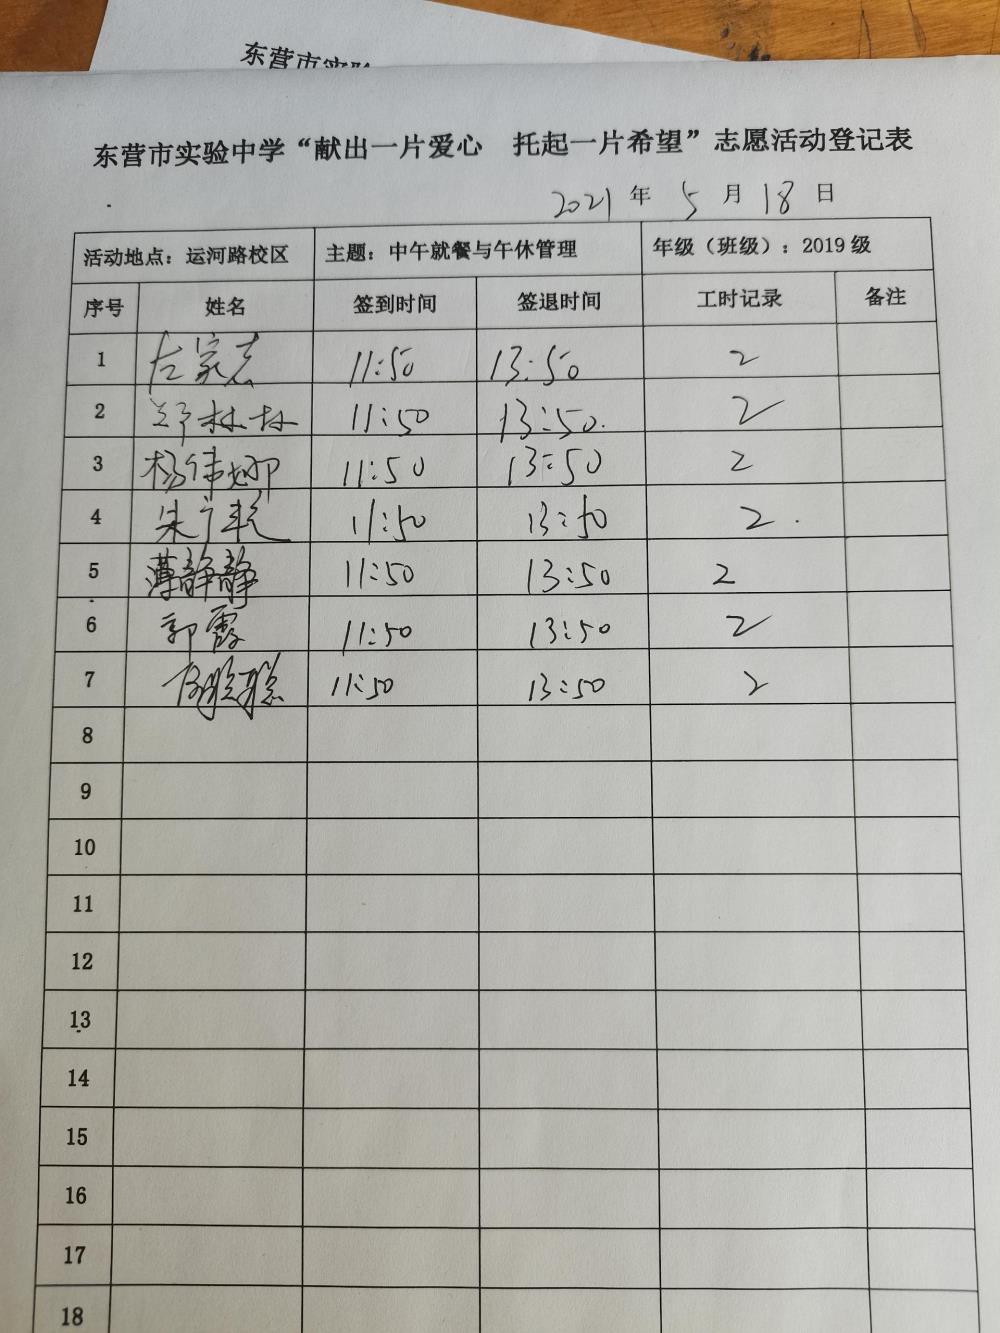 东营市实验
东营市实验中学“献出一片爱心 托起一片希望”志愿活动登记表
2021 年 5 月 18 日
活动地点：运河路校区 主题：中午就餐与午休管理 年级（班级）：2019 级
序号 姓名 签到时间 签退时间 工时记录 备注
1 左家志 11:50 13:50 2
2 郑林林 11:50 13:50. 2
3 杨伟娜 11:50 13:50 2
4 朱广艳 11:50 13:50 2.
5 薄静静 11:50 13:50 2
6 郭霞 11:50 13:50 2
7 11:50 13:50 2
8
9
10
11
12
13
14
15
16
17
18